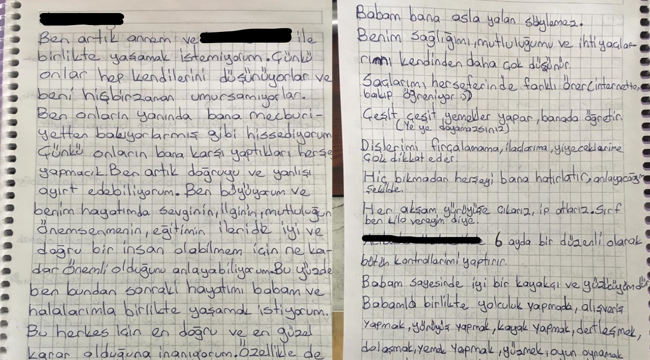 Ben artık annem ve ile
birlikte yaşamak istemiyorum. Çünkü
onlar hep kendilerini düşünüyorlar ve
beni hiçbirzaman umursamıyorlar.
Ben onların yanında bana mecburi-
yetten bakıyorlarmış gibi hissediyorum
Çünkü onların bana karşı yaptıkları herşe
yapmacık. Ben artık doğruyu ve yanlışı
ayırt edebiliyorum. Ben büyüyorum ve
benim hayatımda sevginin, ilginin, mutluluğun
önemsenmenin, eğitimin ileride iyi ve
doğru bir insan olabilmem için ne ka-
dar önemli olduğunu anlayabiliyorum. Bu yüzde
ben bundan sonraki hayatımı babam ve
halalarımla birlikte yaşamak istiyorum.
Bu herkes için en doğru ve en güzel
karar olduğuna inanıyorum. Özellikle de
Babam bana asla yalan söylemez.
Benim sağlığımı, mutluluğumu ve ihtiyaçla-
rımı kendinden daha çok düşünür.
Saçlarımı herseferinde farklı örer (internette
bakıp öğreniyor :))
Çeşit, çeşit yemekler yapar, banada öğretir.
(Ye ye doyamazsınız)
Dişlerimi fırçalamama, ilaçlarıma, yiyeceklerime
çok dikkat eder.
Hiç bıkmadan herşeyi bana hatırlatır, anlayacağım
şekilde.
Her akşam yürüyüşe çıkarız, ip atlarız. Sırf
ben kilo vereyim diye.
6 ayda bir düzenli olarak
bütün kontrollarimi yaptırır.
Babam sayesinde iyi bir kayakçı ve yüzücüyümdür
Babamla birlikte yolculuk yapmada, alışveriş
yapmak, yürüyüş yapmak, kayak yapmak, dertleşmek,
dolaşmak, yemek yapmak, yüzmek, oyun oynamak